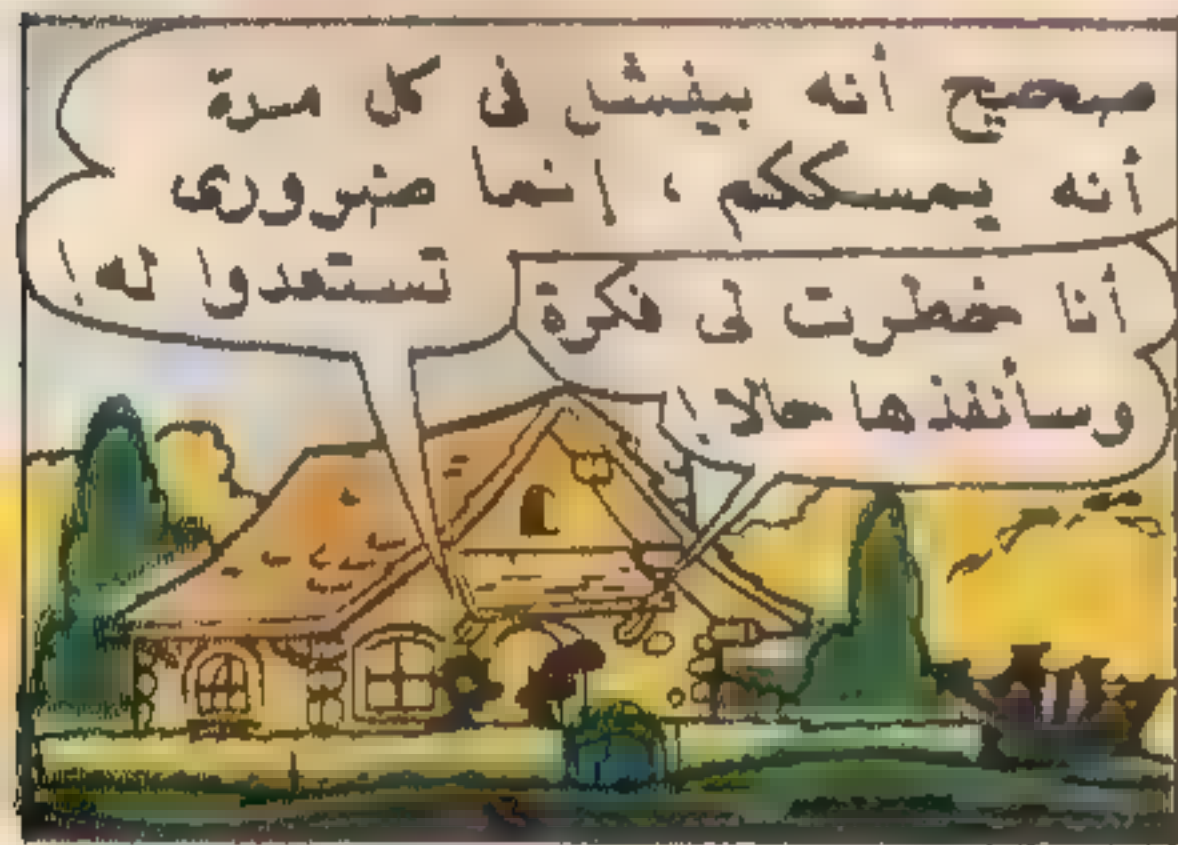 صحيح أنه بيفشل فى كل مرة
أنه يمسككم ، إنما ضرورى
تستعدوا له !
أنا خطرت لى فكرة
وسأنفذها حالا !